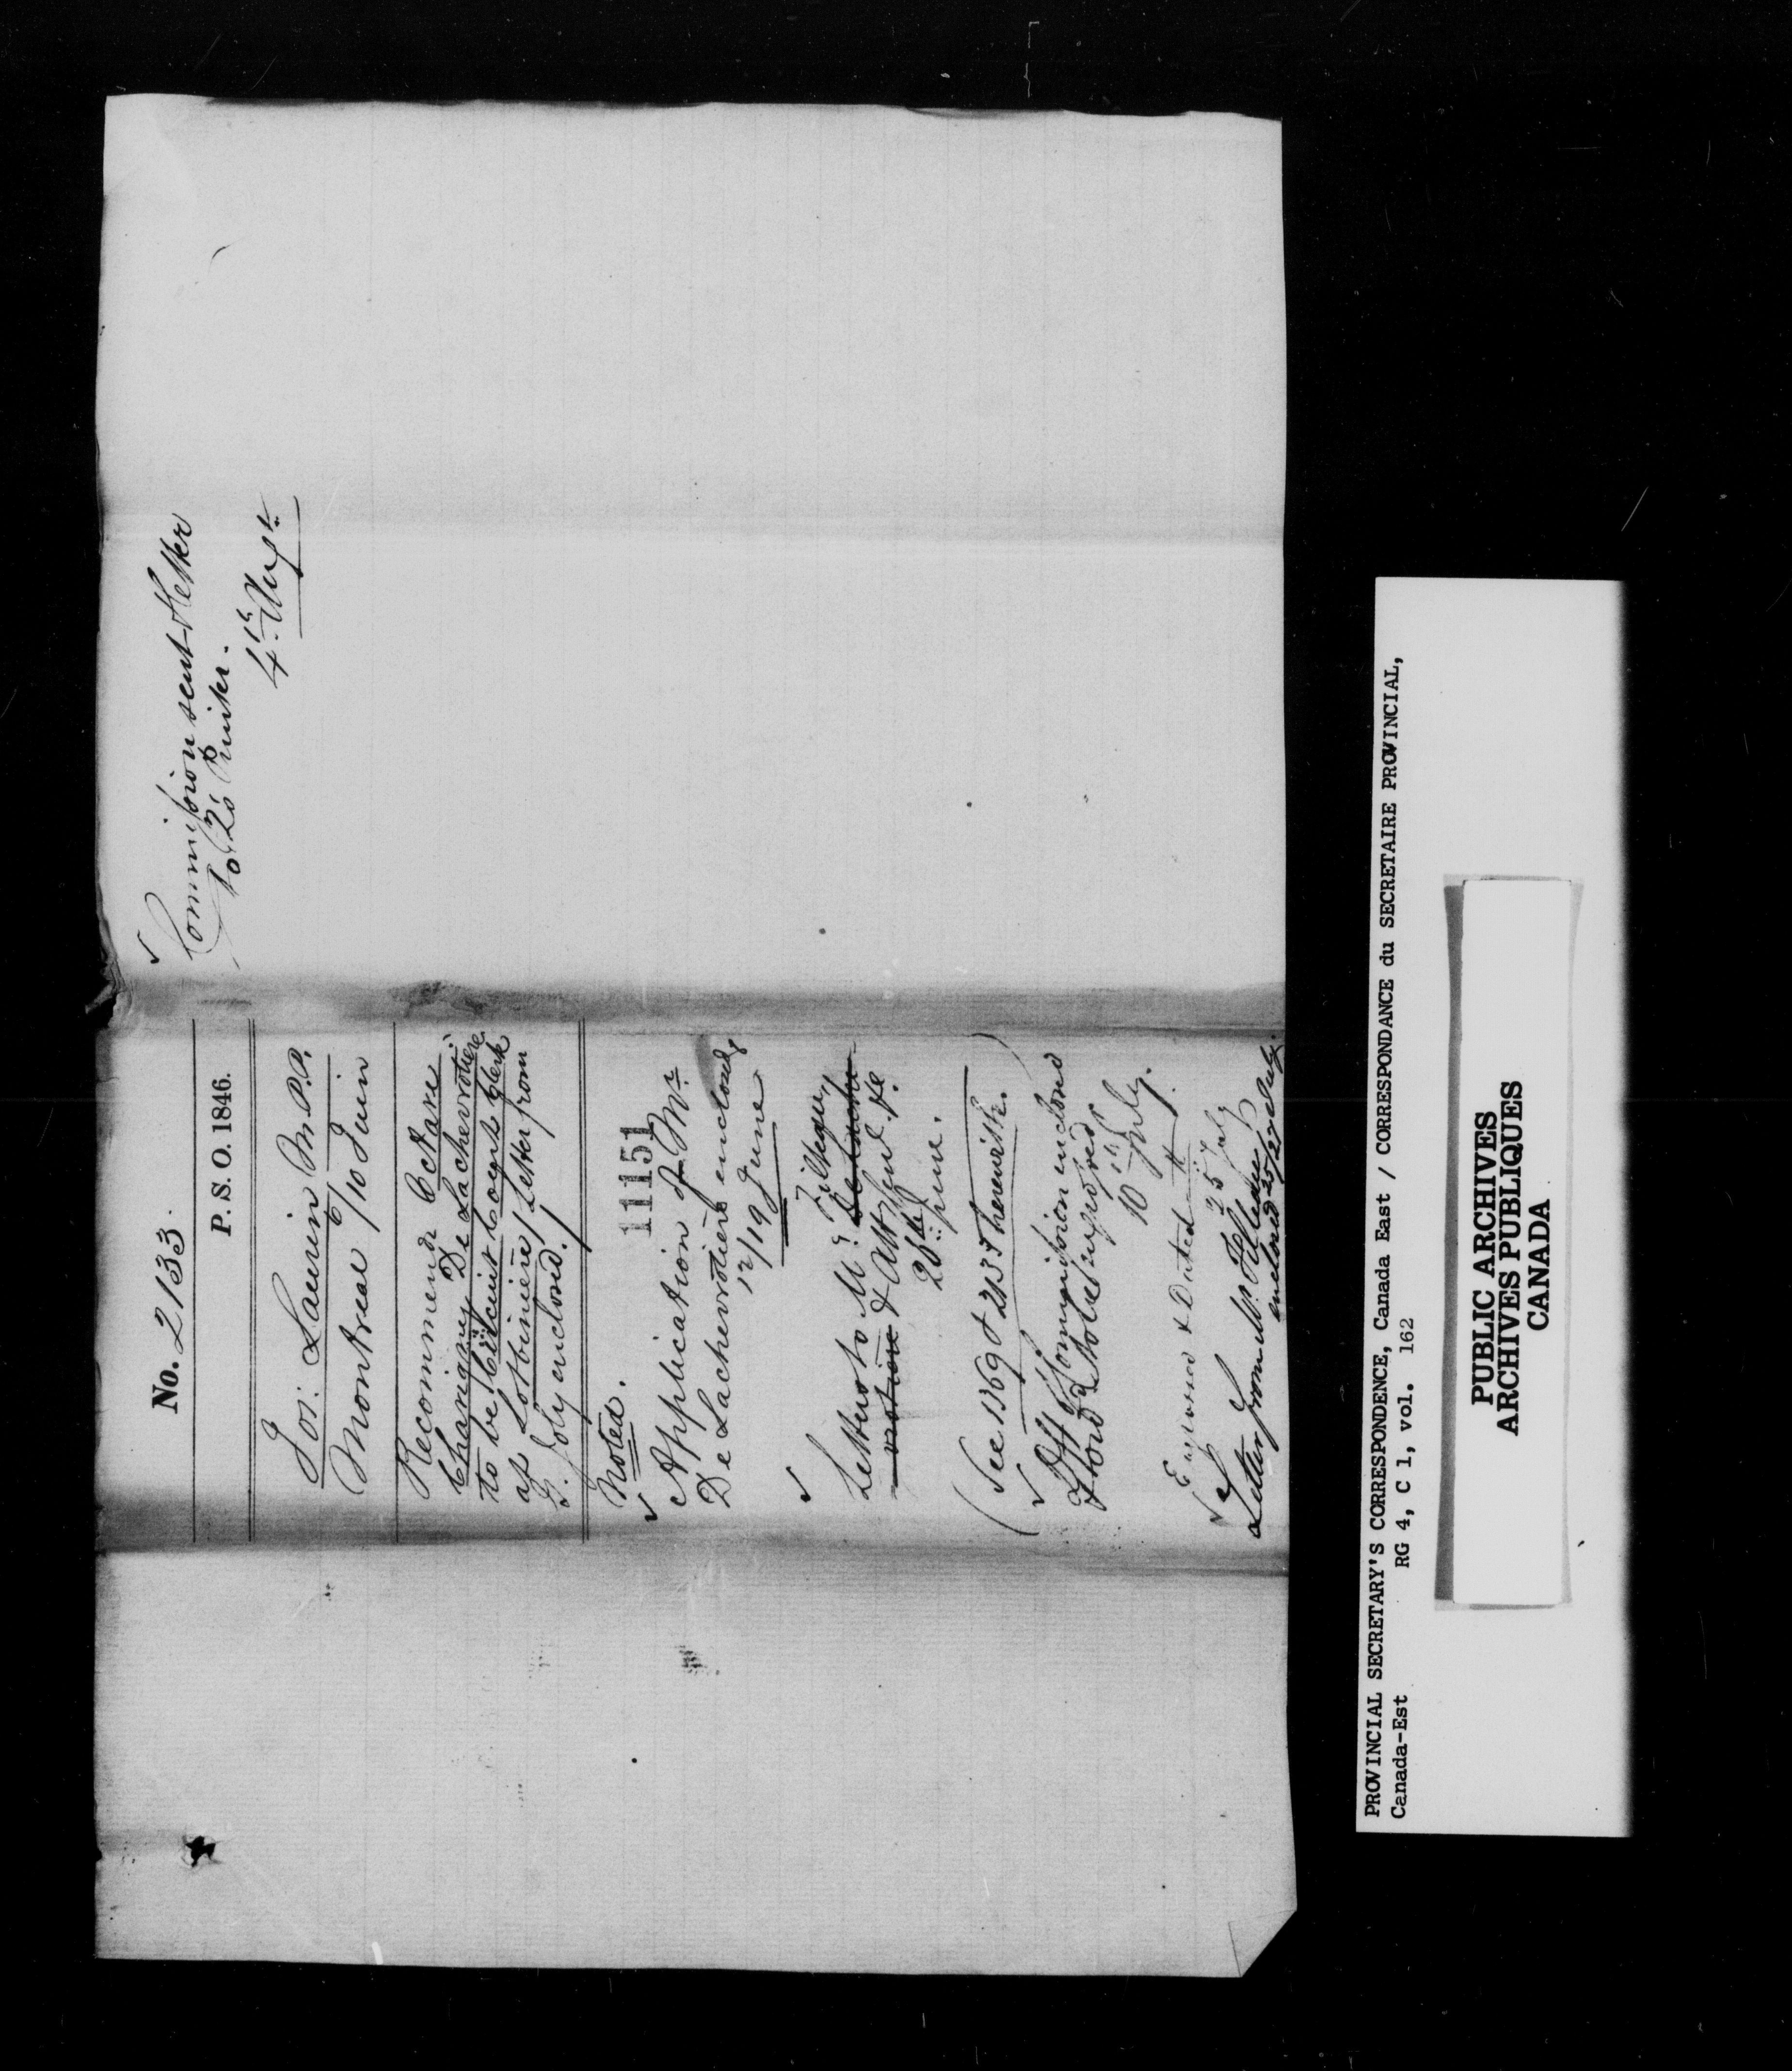 No. 2133.
P. S. O. 1846.
Jos: Laurin M.P.P.
Montreal 6/10 Juin
Recommends Octave
Chavigny De Lachevrotière
to be Circuit Court Clerk
at Lotbinière / Letter from
G. Joly enclosed. /
Noted.
11151
Application of Mr.
De Lachevrotière enclosed
12/19 June
Letters to Mr. Filteau
De Lache-
vrotière & Att Genl
26th June.
(See 1369 & 2135 herewith.)
Commission enclosed
approved
10th July.
Engrossed & Dated
25 July
Letter from Mr. Filteau
enclosed 25/27 July.
Commission sent & letter
to
4th Augt.
PROVINCIAL SECRETARY'S CORRESPONDENCE, Canada East / CORRESPONDANCE du SECRETAIRE PROVINCIAL,
Canada-Est RG 4, C 1, vol. 162
PUBLIC ARCHIVES
ARCHIVES PUBLIQUES
CANADA